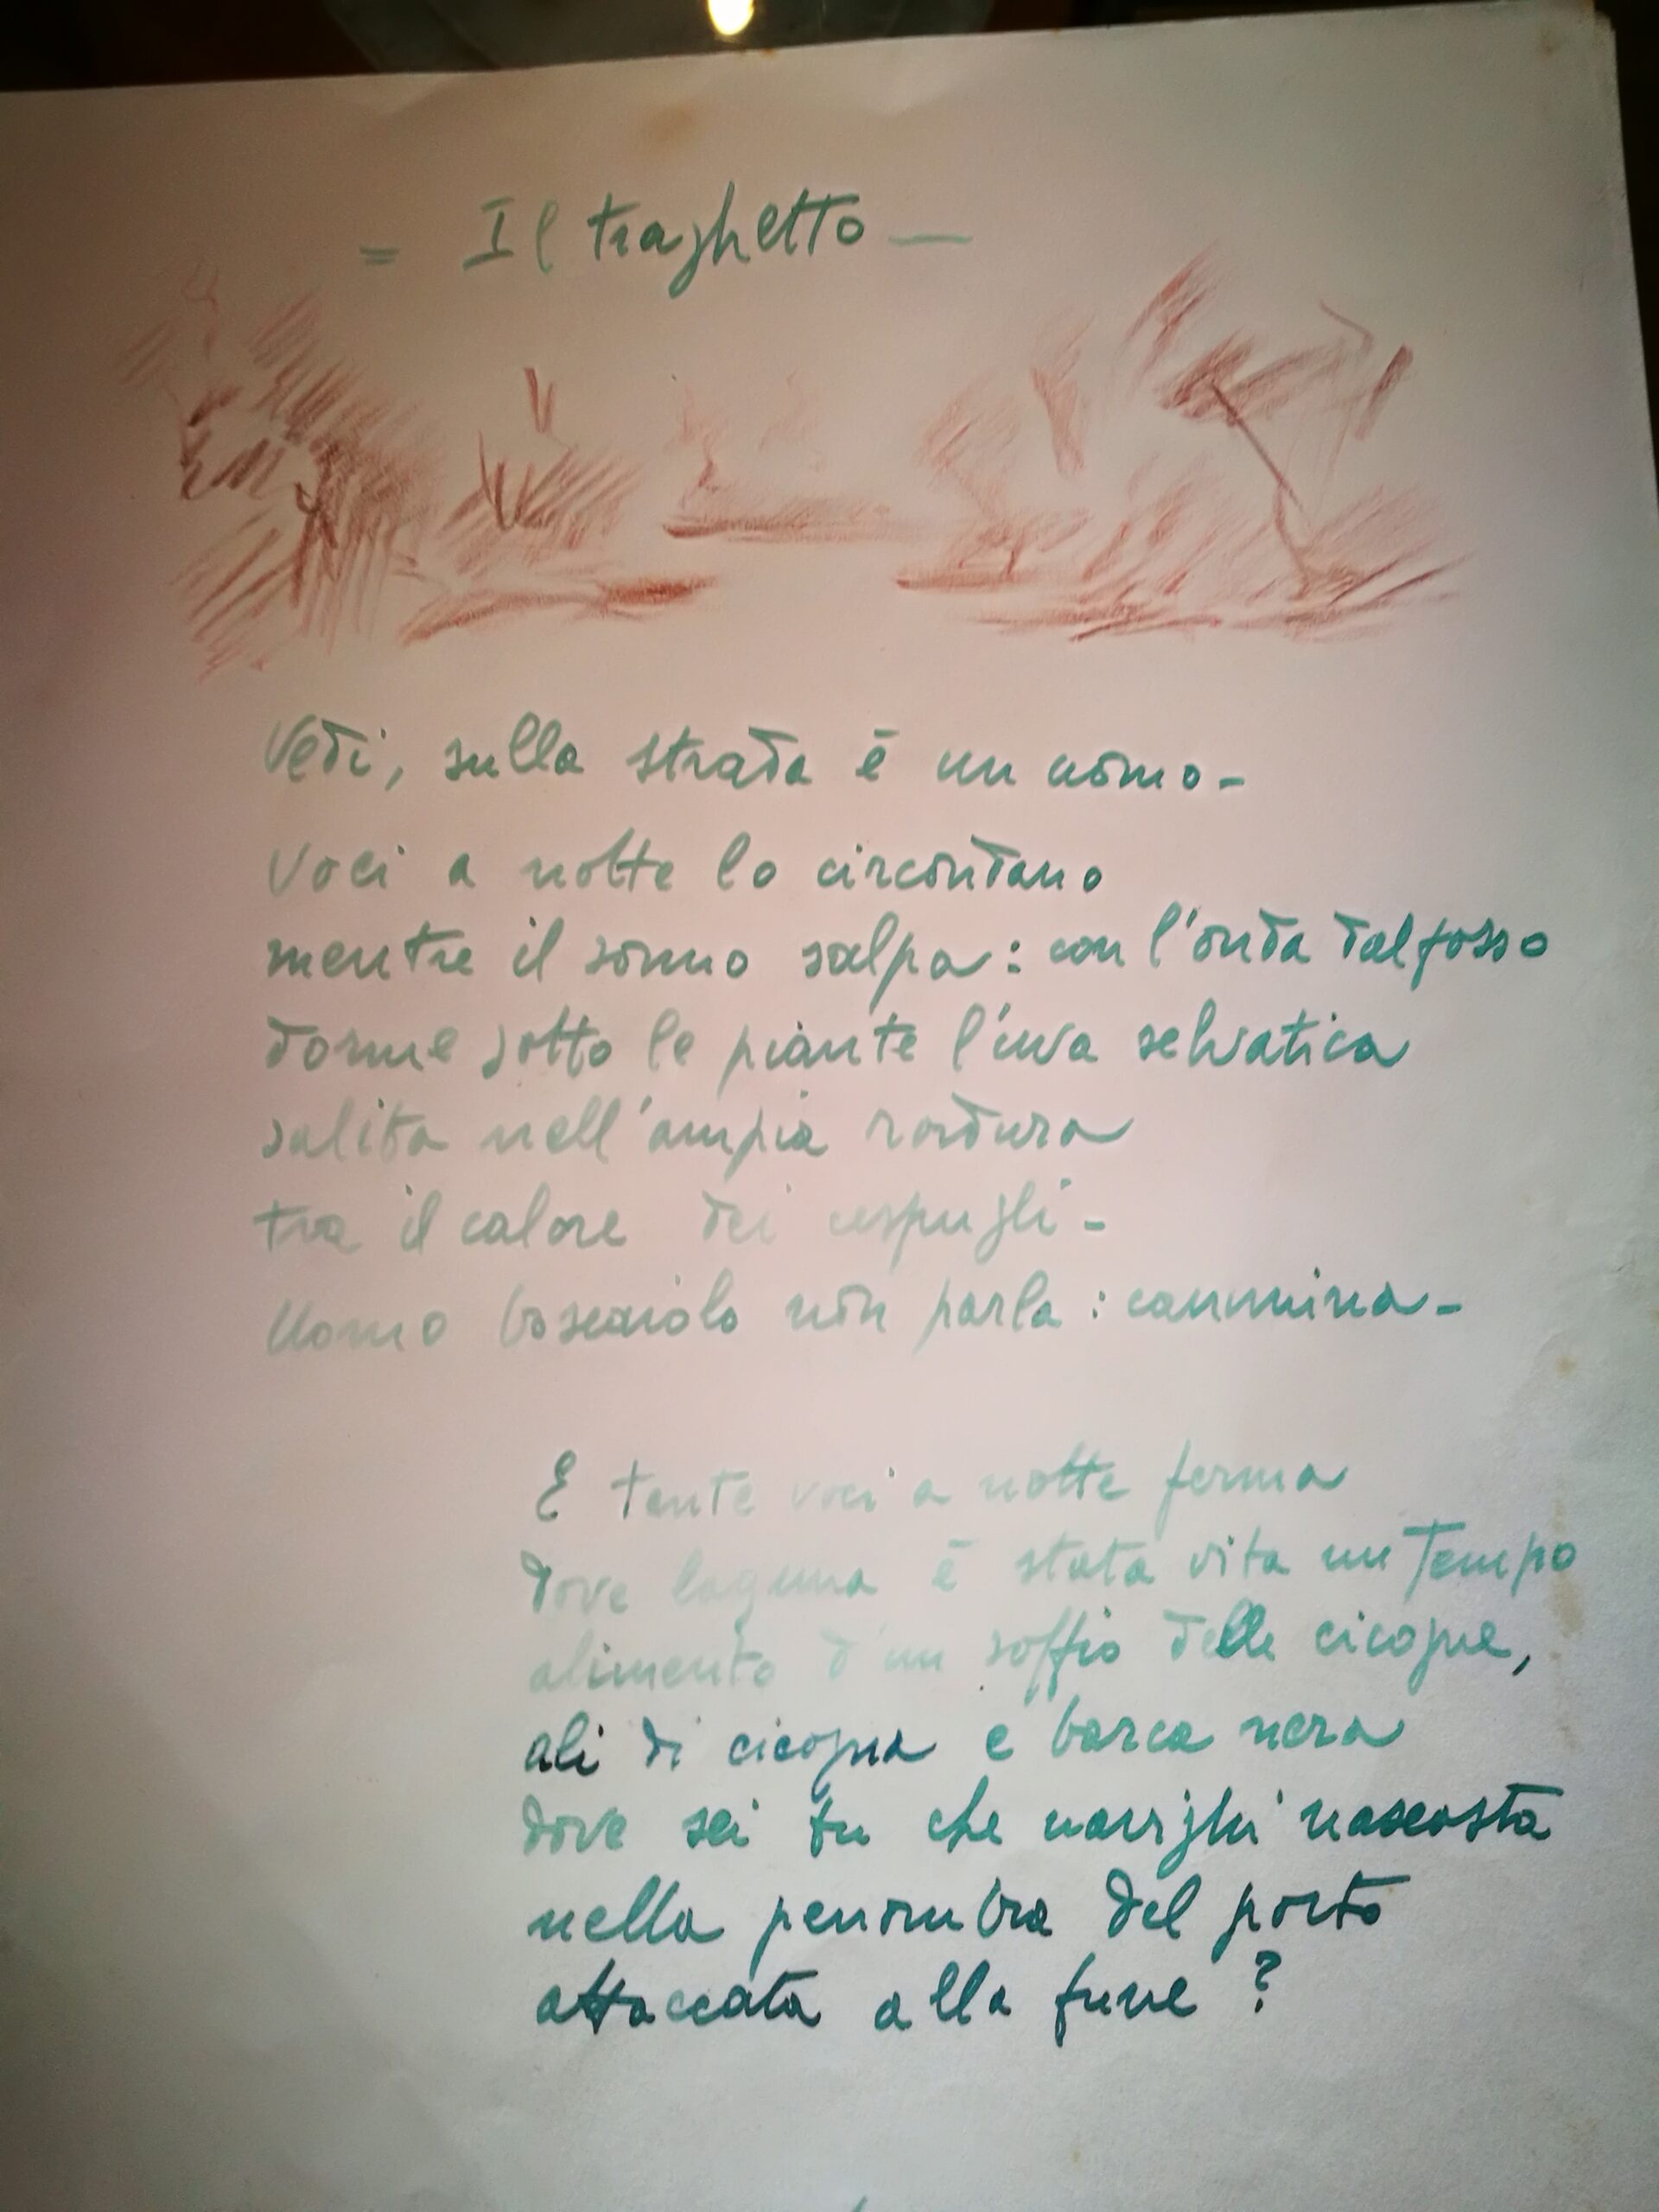 = Il traghetto —
Vedi, sulla strada è un uomo -
Voci a notte lo circondano
mentre il sonno salpa : con l'onda dal fosso
dorme sotto le piante l'uva selvatica
salita nell'ampia radura
tra il calore dei cespugli -
Uomo boscaiolo non parla : cammina -
E tante voci a notte ferma
dove laguna è stata vita un tempo
alimento d'un soffio delle cicogne,
ali di cicogna e barca nera
dove sei tu che navighi nascosta
nella penombra del porto
attaccata alla fune ?